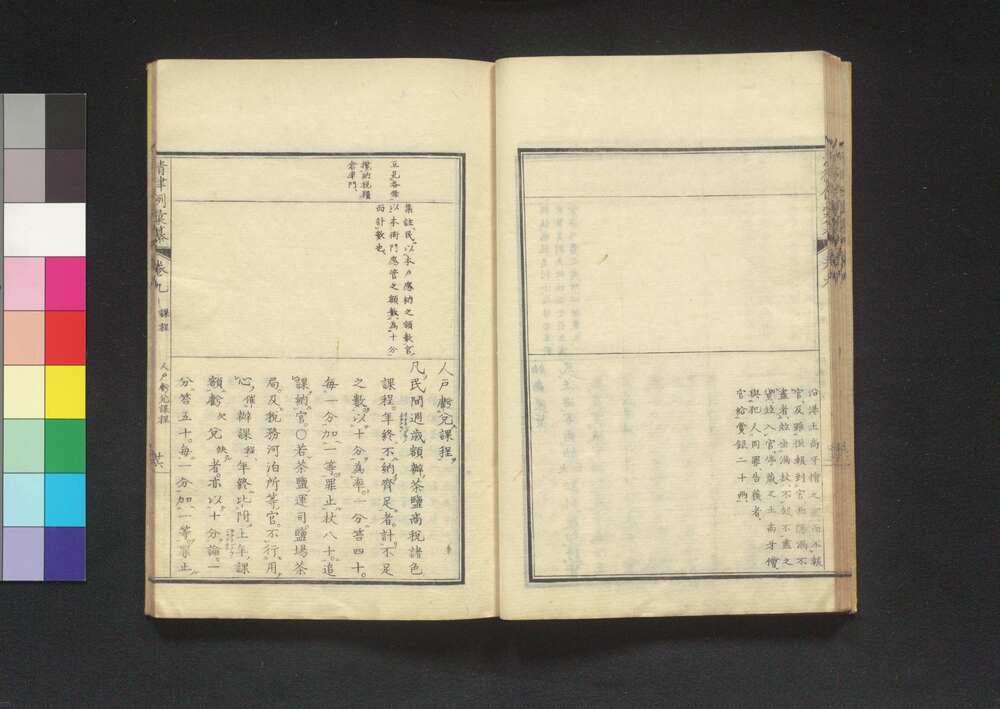 沿港土商牙儈之家而不報
官及雖供報到官而隱漏不
盡者竝坐滿杖不報不盡之
貨竝入官停藏之土商牙儈
與犯人同罪告獲者
官給賞銀二十兩
互見各條
攬納稅糧
倉庫門
集註民以本戶應納之額數官
以本衙門應管之額數爲十分
而計數也
人戶虧兌課程
凡民間週歲額辦茶鹽商稅諸色
課程年終不納齊足者計不足
之數以十分爲率一分笞四十
每一分加一等罪止杖八十追
課納官〇若茶鹽運司鹽場茶
局及稅務河泊所等官不行用
心催辦課程年終比附上年課
額虧欠兌缺者亦以十分論一
分笞五十每一分加一等罪止
清律例彙纂
卷九
課程
人戶虧兌課程
廿六